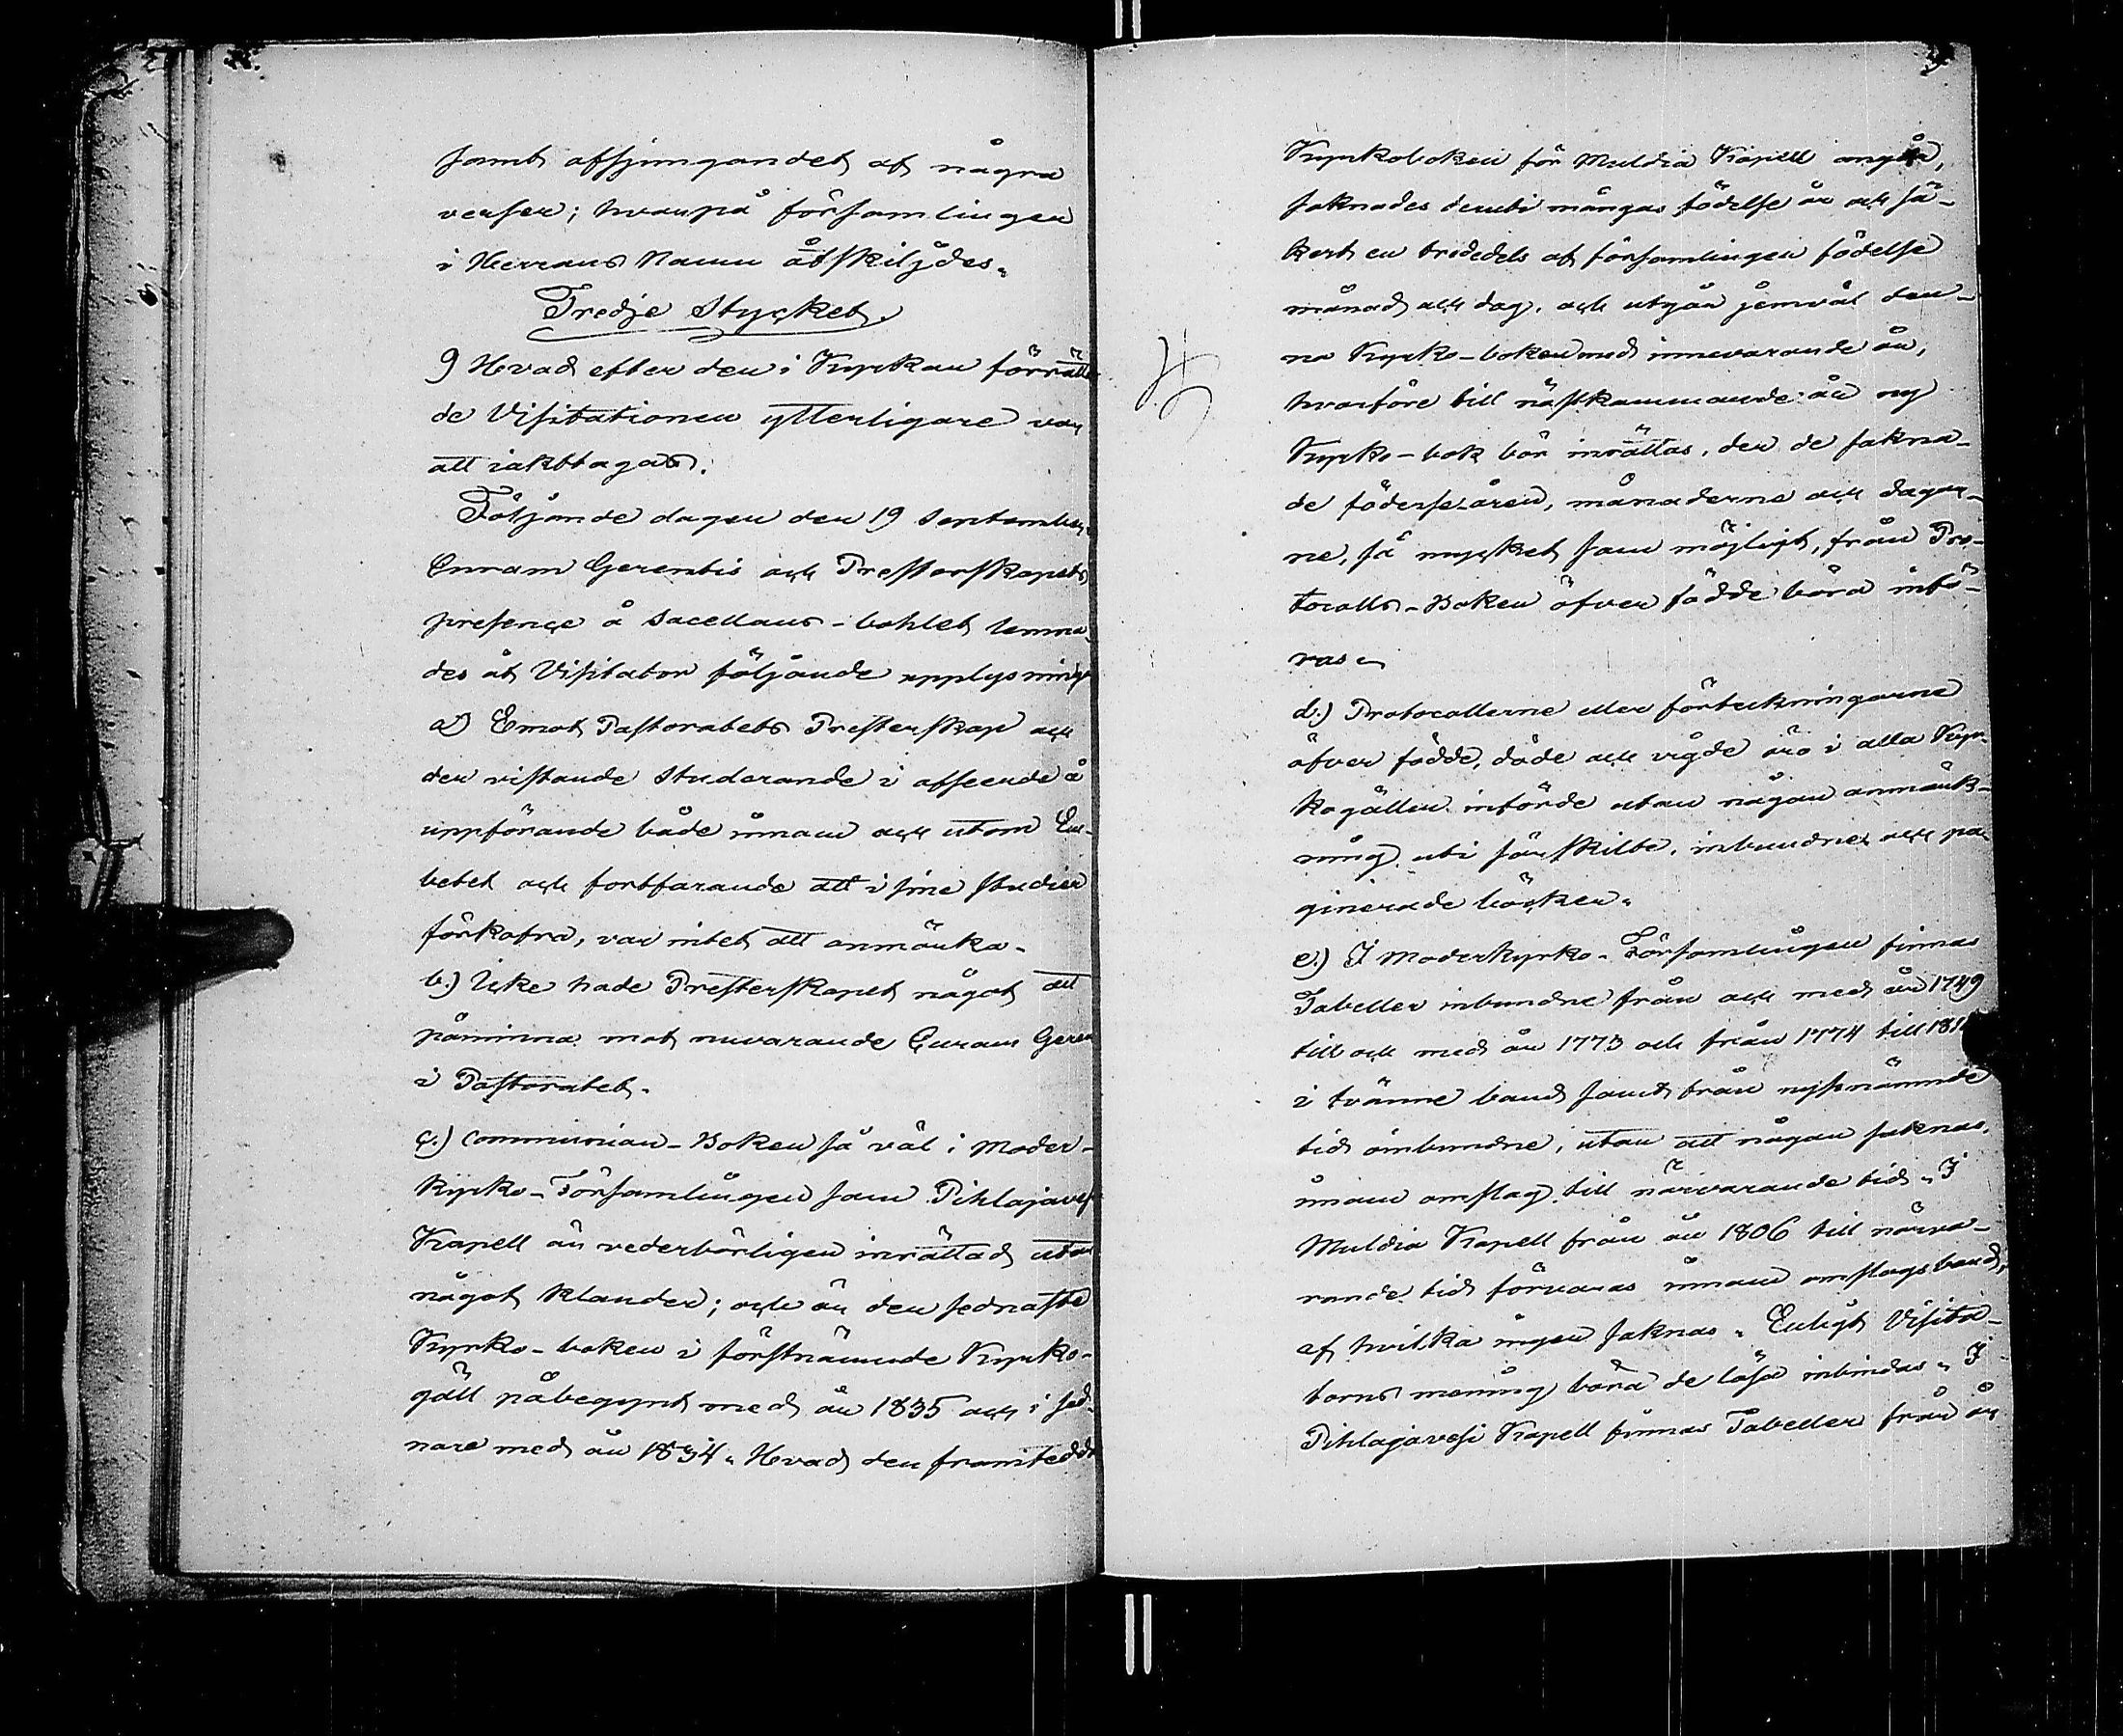 samt afsjungandet af några
verser; hvarpå församlingen
i Herrans Namn åtskiljdes.
Tredje Stycket.
9 Hvad efter den i Kyrkan förrätta
de Visitationen ytterligare var
att iakttagas.
Följande dagen den 19 September i
Curam Gerentis och Presterskapets
presençe å Sacellans-bohlet lemna-
des åt Visitator följande upplysninga
a) Emot Pastoratets Presterskap och
der vistande Studerande i afseende å
uppförande både innom och utom Em-
betet och fortfarande att i sine studier
förkofra, var intet att anmärka.
b.) Icke hade Presterskapet något att
påminna mot nuvarande Curam Geren
i Pastoratet.
c.) Communion-Boken så väl i Moder-
kyrko-Församlingen som Pihlajavesi
Kapell är vederbörligen inrättad utan
något klander; och är den sednaste
Kyrko-boken i förstnämnde Kyrko-
gäll påbegynt med år 1835 och i sed-
nare med år 1834. Hvad den framtedde
Kyrkoboken för Muldia Kapell angår,
saknades deruti mångas födelse år och sä-
kert en tredjedels af församlingen födelse
månad och dag, och utgår jemväl den-
na Kyrko-boken med innevarande år,
hvarföre till nästkammande år ny
Kyrko-bok bör inrättas, der de sakna-
de födelse åren, månaderne och dagar-
ne, så myçket som möjligt, från Pro-
tocolls-Boken öfver födde böra infö-
ras.
d.) Protocollerne eller förteckningarne
öfver födde, döde och vigde äro i alla Kyr-
kogällen införde utan någon anmärk-
ning uti särskilte, inbundne och pa-
ginerade böcker.
e.) I Moderkyrko-Församlingen finnas
Tabeller inbundne från och med år 1749
till och med år 1773 och från 1774 till 181
i tvänne band samt från nyssnämnde
tid oinbundne, utan att någon saknas,
innom omslag till närvarande tid. I
Muldia Kapell från år 1806 till närva-
rande tid förvaras innom omslags band,
af hvilka ingen saknas. Enligt Visita-
torns mening böra de lösa inbindas. I
Pihlajavesi Kapell finnas Tabeller från år